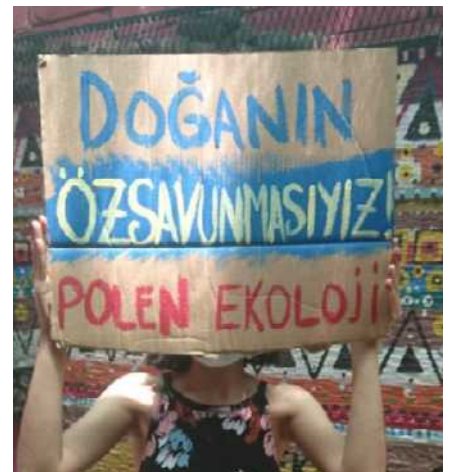 DOĞANIN
ÖZSAVUNMASIYIZ!
POLEN EKOLOJİ